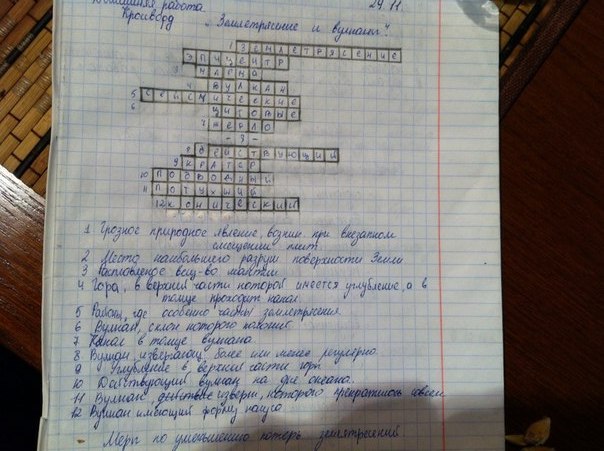 Домашняя работа 24.11.
Кроссворд „Землетрясение и вулканы".
1 Землетрясение
Эпицентр
3
4 вулкан
5 сейсмические
6 щитовые
7 жерло
- З -
8 действующий
9 кратер
10 подводный
11 потухший
12 конический
1 Грозное природное явление, возник. при внезапном
смещении плит
2 Место наибольшего разруш поверхности Земли
3 вещ-во мантии
4 Гора, в верхней части которой имеется углубление, а в
толще проходит канал.
5 Районы, где особенно часты землетрясения
6 Вулкан, склон которого пологий
7 Канал в толще вулкана
8 Вулкан, извергающ. более или менее регулярно.
9 Углубление в верхней части горы
10 Действующий вулкан на дне океана.
11 Вулкан, извери, которого прекратилось совсем
12 Вулкан имеющий форму конуса
Меры по уменьшению потерь землятрясений